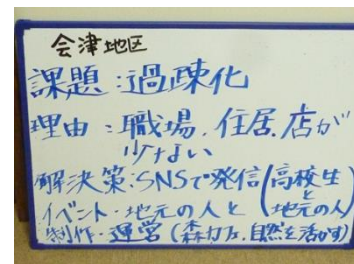 会津地区
課題：過疎化
理由：職場、住居、店が
少ない
解決策：SNSで発信（高校生と地元の人）
イベント・地元の人と
制作・運営（森カフェ、自然を活かす）